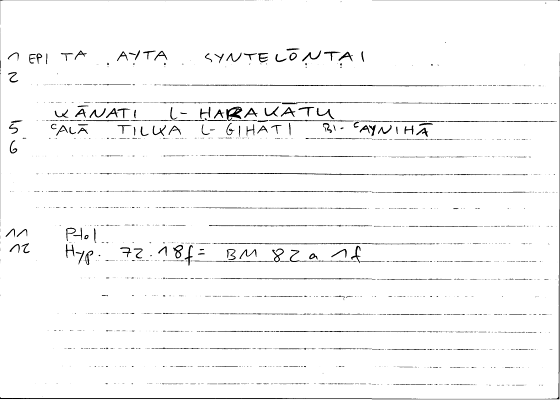 1 EPI TA AYTA SYNTELŌNTAI
2
KĀNATI L-HARAKĀTU
5 ʿALĀ TILKA L-GIHATI BI-ʿAYNIHĀ
6
11 Ptol
12 Hyp. 72.18f = BM 82a 1f